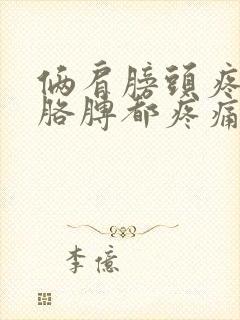 俩肩膀頭疼
胳膊都疼痛
李億